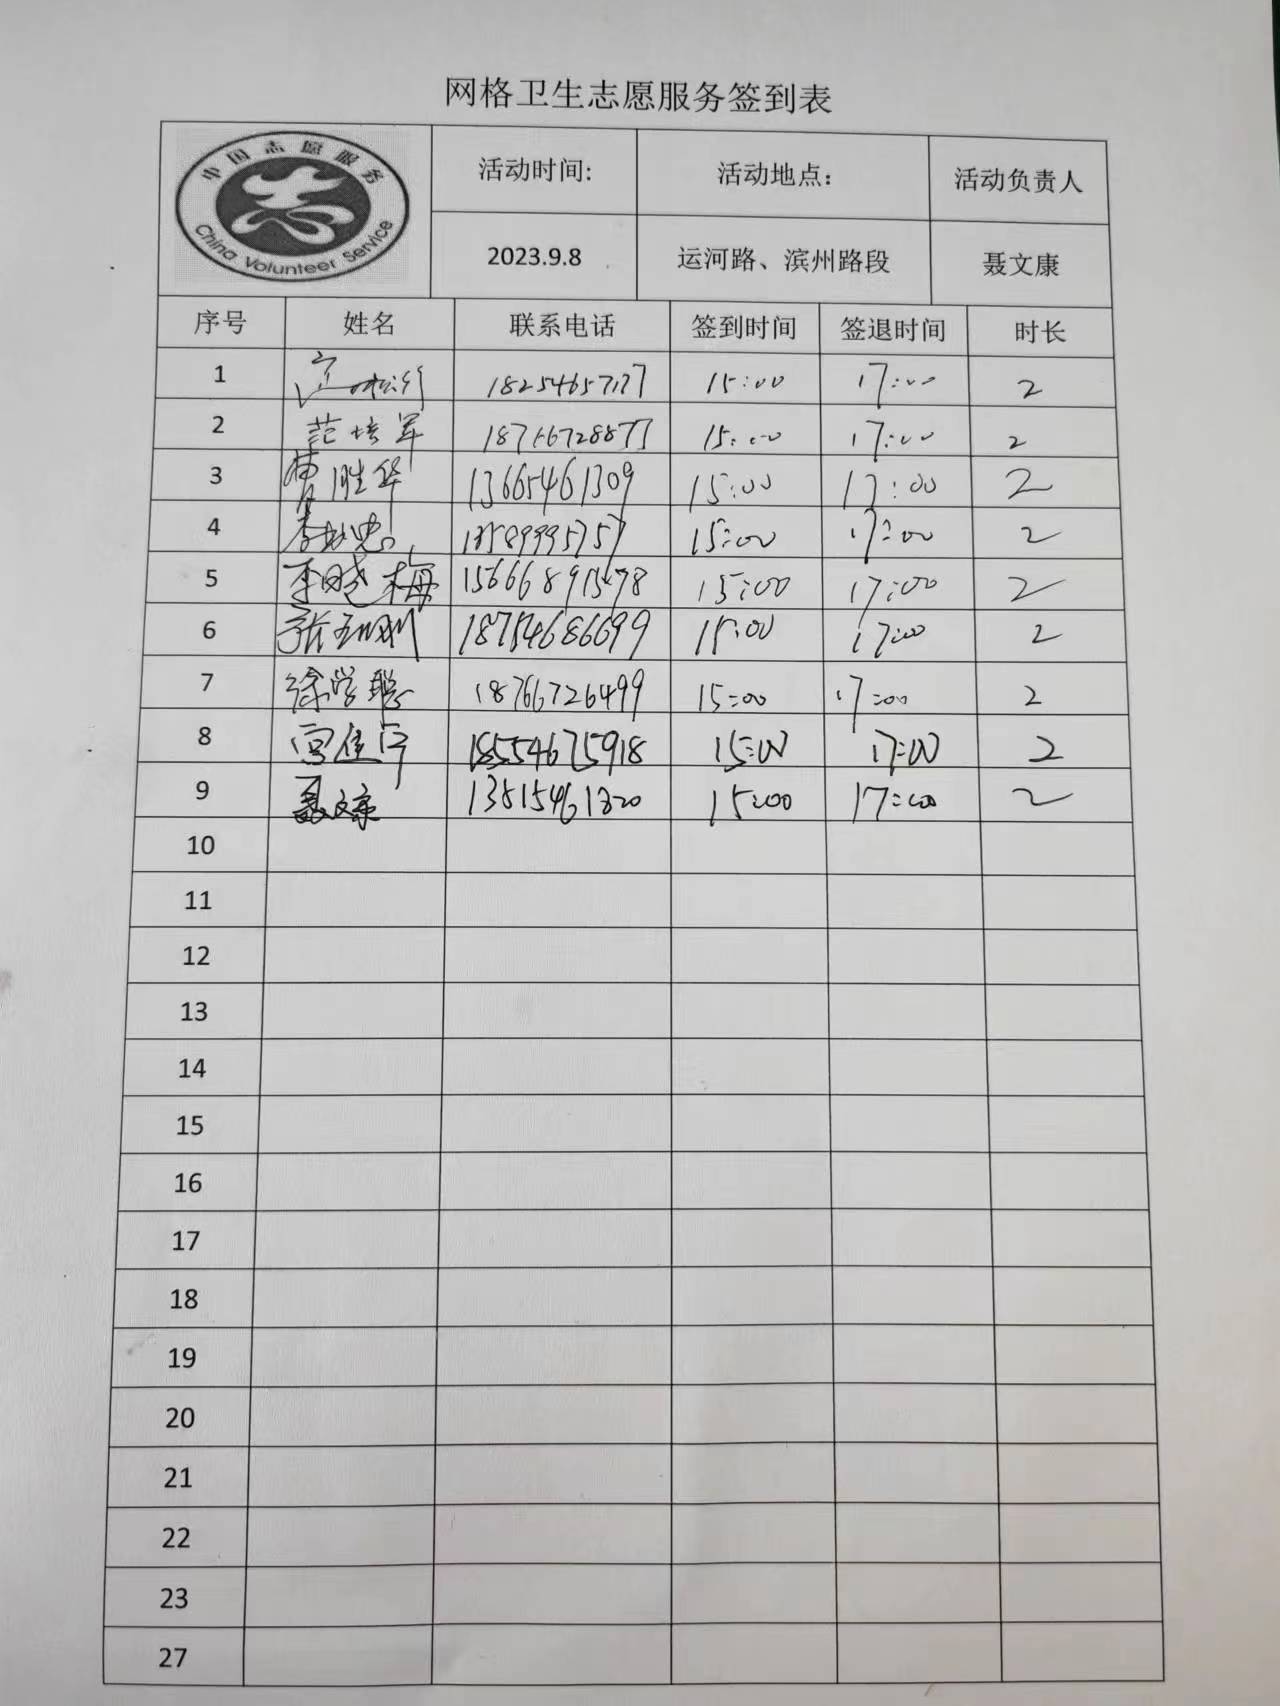 网格卫生志愿服务签到表
中国志愿服务
China Volunteer Service
活动时间: 活动地点: 活动负责人
2023.9.8 运河路、滨州路段 聂文康
序号 姓名 联系电话 签到时间 签退时间 时长
1 15:00 17:00 2
2 范培军 15:00 17:00 2
3 曹胜华 13665461309 15:00 17:00 2
4 13589995757 15:00 17:00 2
5 李晓梅 15666891578 15:00 17:00 2
6 18754686699 15:00 17:00 2
7 徐学聪 18766726499 15:00 17:00 2
8 宫佳宁 18554675918 15:00 17:00 2
9 聂文康 15:00 17:00 2
10
11
12
13
14
15
16
17
18
19
20
21
22
23
27